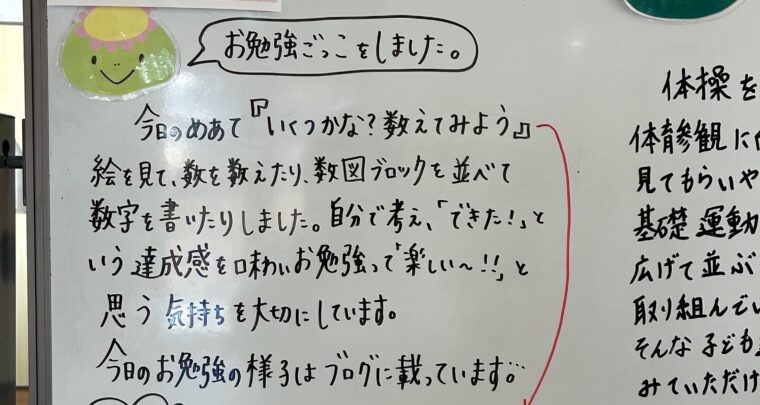 お勉強ごっこをしました。
今日のめあて『いくつかな?数えてみよう』
絵を見て、数を数えたり、数図ブロックを並べて
数字を書いたりしました。自分で考え、「できた!」と
いう達成感を味わいお勉強って「楽しい~!!」と
思う気持ちを大切にしています。
今日のお勉強の様子はブログに載っています。
体操を
体育参観に
見てもらいや
基礎運動
広げて並ぶ
取り組んでい
そんな子ども
みていただけ